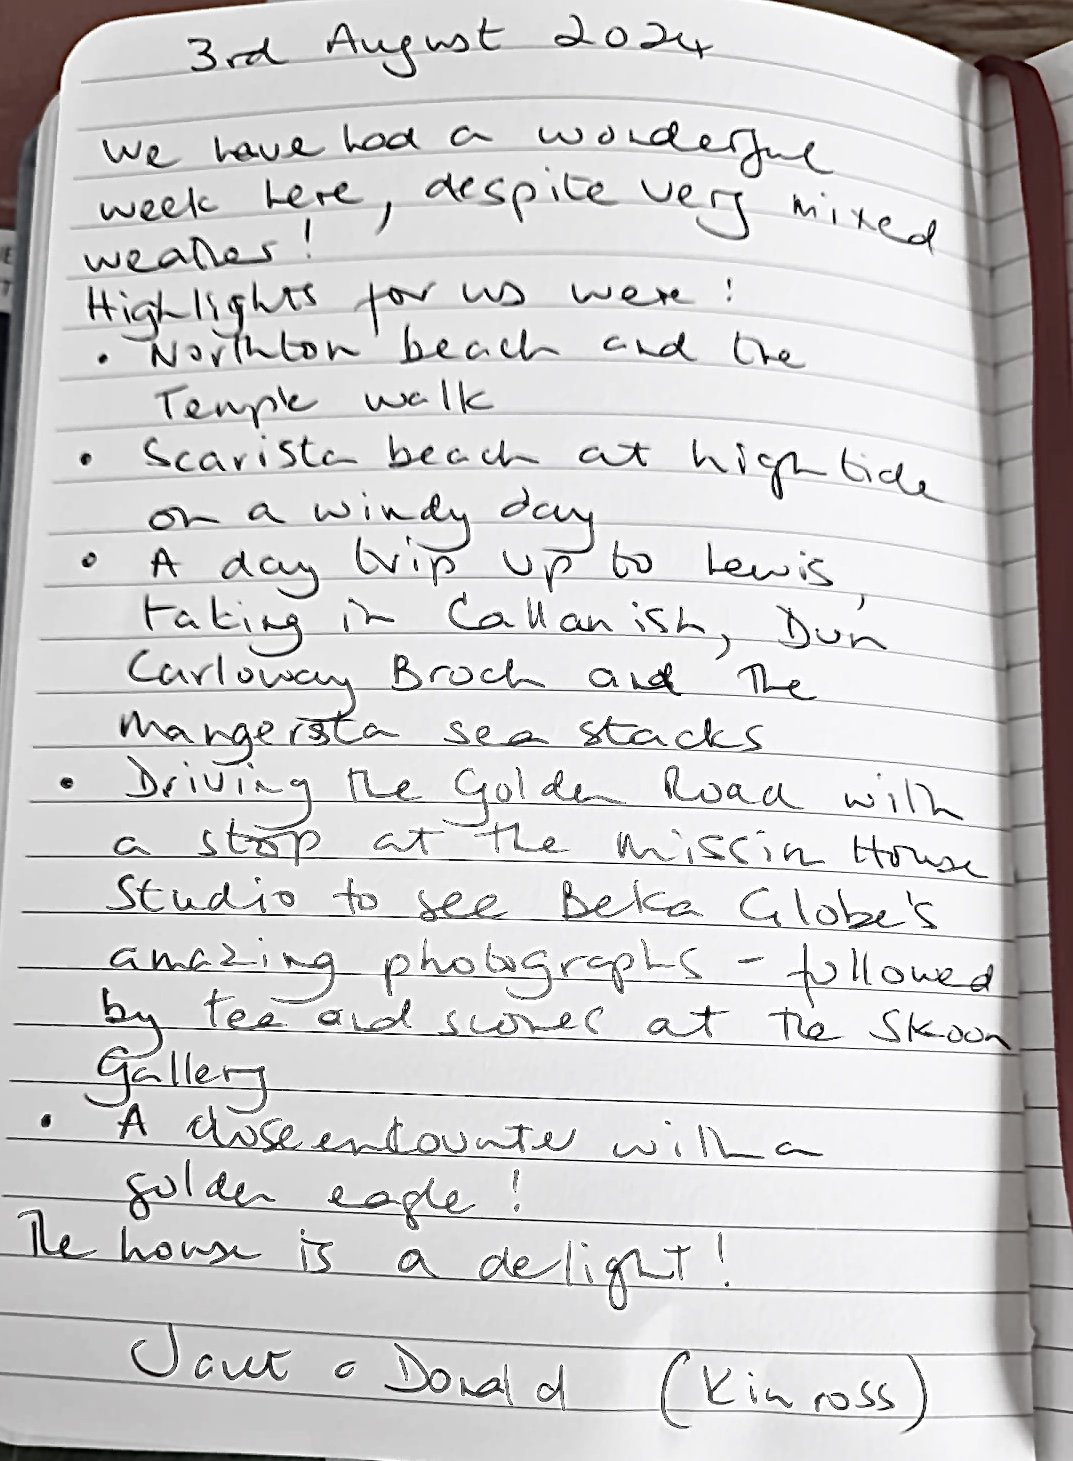 3rd August 2024
We have had a wonderful
week here, despite very mixed
weather!
Highlights for us were:
• Northton beach and the
Temple walk
• Scarista beach at high tide
on a windy day
• A day trip up to Lewis,
taking in Callanish, Dun
Carloway Broch and the
Mangersta sea stacks
• Driving the Golden Road with
a stop at the Mission House
Studio to see Beka Globe's
amazing photographs - followed
by tea and scones at the Skoon
Gallery
• A close encounter with a
golden eagle!
The house is a delight!
Janet & Donald (Kinross)